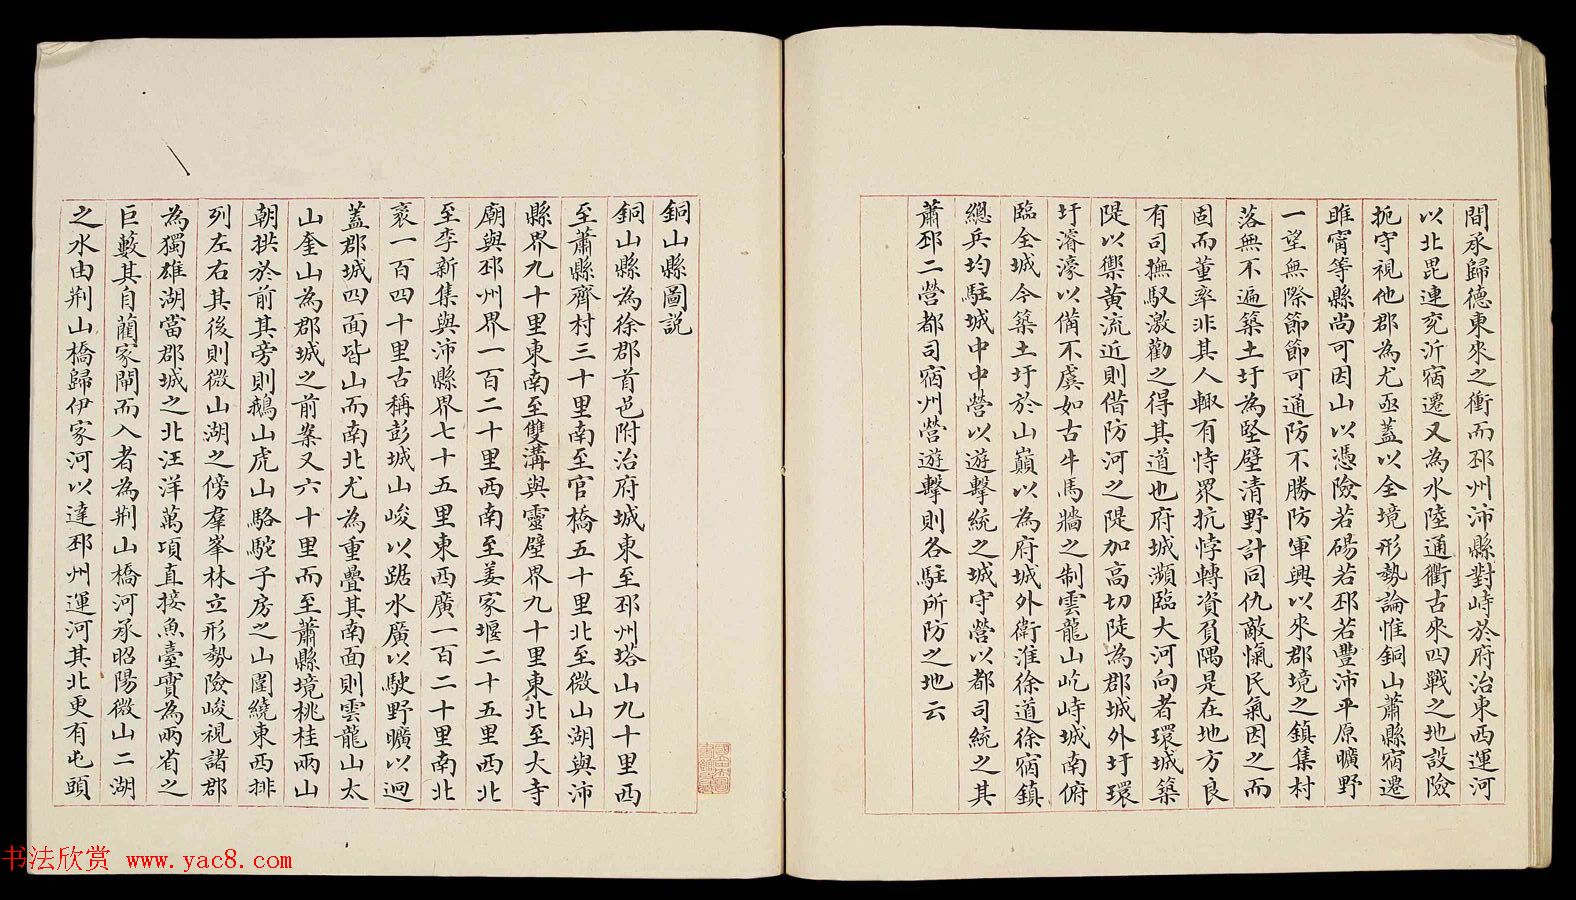 間承歸德東來之衝而邳州沛縣對峙於府治東西運河
以北毘連兖沂宿遷又為水陸通衢古來四戰之地設險
扼守視他郡為尤亟蓋以全境形勢論惟銅山蕭縣宿遷
睢甯等縣尚可因山以憑險若碭若邳若豐沛平原曠野
一望無際節節可通防不勝防軍興以來郡境之鎮集村
落無不遍築土圩為堅壁清野計同仇敵愾民氣因之而
固而董率非其人輙有恃眾抗悖轉資負隅是在地方良
有司撫馭激勸之得其道也府城瀕臨大河向者環城築
隄以禦黃流近則借防河之隄加高切陡為郡城外圩環
圩濬濠以備不虞如古牛馬牆之制雲龍山屹峙城南俯
臨全城今築土圩於山巔以為府城外衛淮徐道徐宿鎮
總兵均駐城中中營以遊擊統之城守營以都司統之其
蕭邳二營都司宿州營遊擊則各駐所防之地云
銅山縣圖説
銅山縣為徐郡首邑附治府城東至邳州塔山九十里西
至蕭縣齊村三十里南至官橋五十里北至微山湖與沛
縣界九十里東南至雙溝與靈壁界九十里東北至大寺
廟與邳州界一百二十里西南至姜家堰二十五里西北
至李新集與沛縣界七十五里東西廣一百二十里南北
袤一百四十里古稱彭城山峻以踞水廣以駛野曠以迥
蓋郡城四面皆山而南北尤為重疊其南面則雲龍山太
山奎山為郡城之前案又六十里而至蕭縣境桃桂兩山
朝拱於前其旁則鵝山虎山駱駝子房之山圍繞東西排
列左右其後則微山湖之傍羣峯林立形勢險峻視諸郡
為獨雄湖當郡城之北汪洋萬項直接魚臺實為兩省之
巨藪其自藺家閘而入者為荆山橋河承昭陽微山二湖
之水由荆山橋歸伊家河以達邳州運河其北更有屯頭
书法欣赏 www.yac8.com